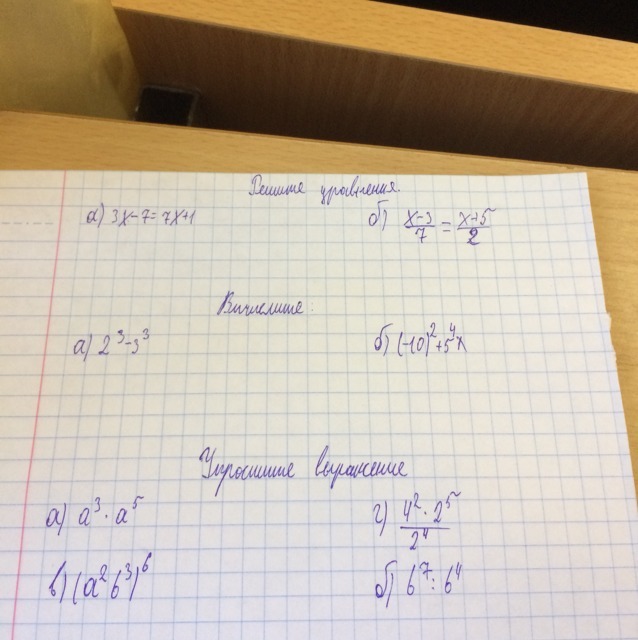 Решите уравнения.
а) 3x-7=7x+1 б) \frac{x-3}{7} = \frac{x+5}{2}
Вычислите:
а) 2³-3³ б) (-10)²+5⁴
Упростите выражение
а) a³ · a⁵ г) \frac{4² · 2⁵}{2⁴}
в) (a²b³)⁶ б) b⁷ : b⁴